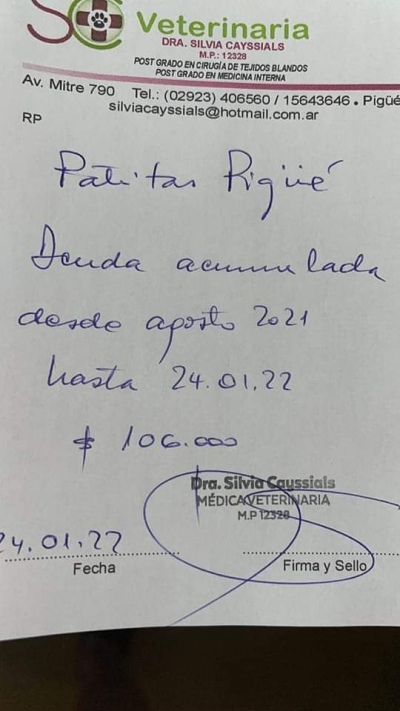 SC Veterinaria
DRA. SILVIA CAYSSIALS
M.P.: 12328
POST GRADO EN CIRUGÍA DE TEJIDOS BLANDOS
POST GRADO EN MEDICINA INTERNA
Av. Mitre 790 Tel.: (02923) 406560 / 15643646 • Pigüé
silviacayssials@hotmail.com.ar
RP
Patitas Pigüé
Deuda acumulada
desde agosto 2021
hasta 24.01.22
$ 106.000
Dra. Silvia Cayssials
MÉDICA VETERINARIA
M.P 12328
24.01.22
Fecha
Firma y Sello